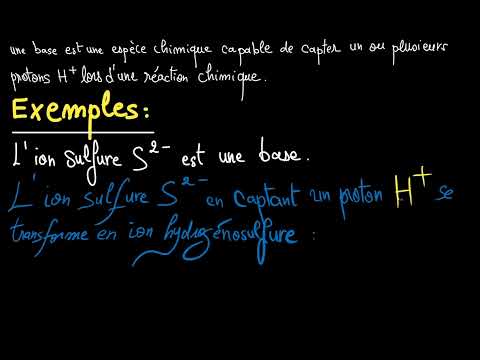 une base est une espèce chimique capable de capter un ou plusieurs
protons H⁺ lors d'une réaction chimique.
Exemples:
L'ion sulfure S²⁻ est une base.
L'ion sulfure S²⁻ en captant un proton H⁺ se
transforme en ion hydrogénosulfure :